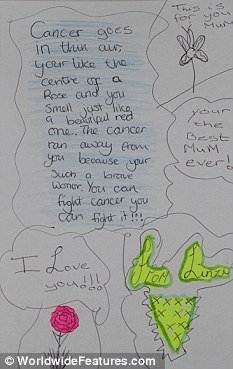 Cancer goes
in thin air,
your like the
centre of a
Rose and you
Smell just like
a beautiful red
one. The cancer
ran away from
you because your
Such a brave
Women. You can
fight cancer you
can fight it!!!
This is
for you
Mum
your
the
Best
MuM
ever!
I Love
you!!!
From Linzy
© WorldwideFeatures.com